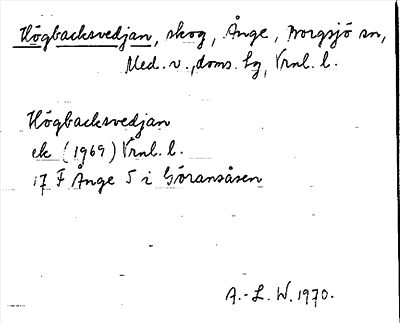 Högbacksvedjan, skog, Ånge, Borgsjö sn,
Med. v., doms. hg, Vrnl. l.
Högbacksvedjan
ek (1969) Vrnl. l.
17 F Ånge 5 i Göransåsen
A.-L. W. 1970.